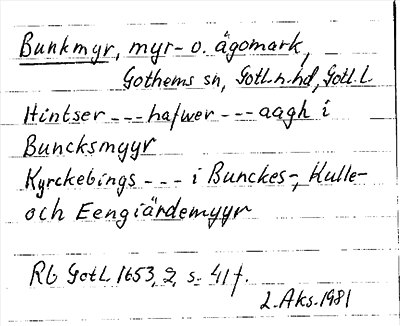 Bunkmyr, myr- o. ägomark,
Gothems sn, Gotl.n.hd, Gotl.l.
Hintser --- hafwer --- aagh i
Buncksmyyr
Kyrckebings --- i Bunckes-, Kulle-
och Eengiärdemyyr
Rb Gotl. 1653, 2, s. 41 f.
L.Aks.1981